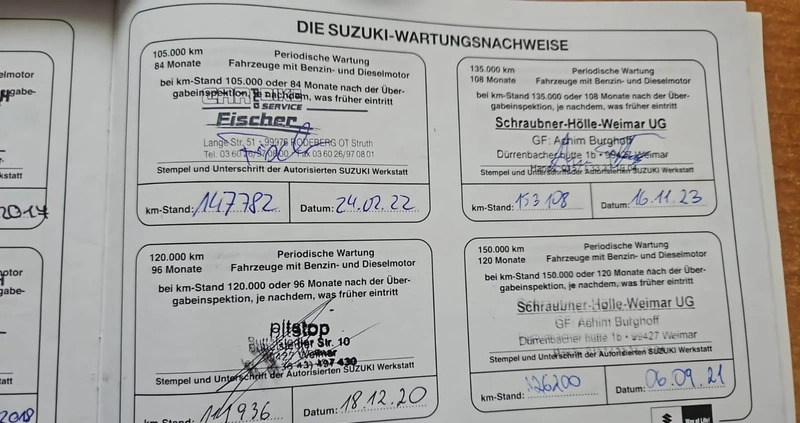 DIE SUZUKI-WARTUNGSNACHWEISE
elmotor
gabe-
statt
2017
105.000 km
84 Monate
Periodische Wartung
Fahrzeuge mit Benzin- und Dieselmotor
bei km-Stand 105.000 oder 84 Monate nach der Über-
gabeinspektion, je nachdem, was früher eintritt
SERVICE
Fischer
Lange Str. 51 · 99976 RODEBERG OT Struth
Tel. 03 60 26/97 08 00 Fax 03 60 26/97 08 01
Stempel und Unterschrift der Autorisierten SUZUKI Werkstatt
km-Stand: 147782
Datum: 24.02.22
135.000 km
108 Monate
Periodische Wartung
Fahrzeuge mit Benzin- und Dieselmotor
bei km-Stand 135.000 oder 108 Monate nach der Über-
gabeinspektion, je nachdem, was früher eintritt
Schraubner-Hölle-Weimar UG
GF: Achim Burghoff
Dürrenbacher hütte 1b · 99427 Weimar
Stempel und Unterschrift der Autorisierten SUZUKI Werkstatt
km-Stand: 153108
Datum: 16.11.23
otor
gabe-
tatt
2018
120.000 km
96 Monate
Periodische Wartung
Fahrzeuge mit Benzin- und Dieselmotor
bei km-Stand 120.000 oder 96 Monate nach der Über-
gabeinspektion, je nachdem, was früher eintritt
pitstop
Str. 10
Weimar
497 430
Stempel und Unterschrift der Autorisierten SUZUKI Werkstatt
km-Stand: 111936
Datum: 18.12.20
150.000 km
120 Monate
Periodische Wartung
Fahrzeuge mit Benzin- und Dieselmotor
bei km-Stand 150.000 oder 120 Monate nach der Über-
gabeinspektion, je nachdem, was früher eintritt
Schraubner-Hölle-Weimar UG
GF: Achim Burghoff
Dürrenbacher hütte 1b · 99427 Weimar
Stempel und Unterschrift der Autorisierten SUZUKI Werkstatt
km-Stand: 126200
Datum: 06.09.21
Way of Life!